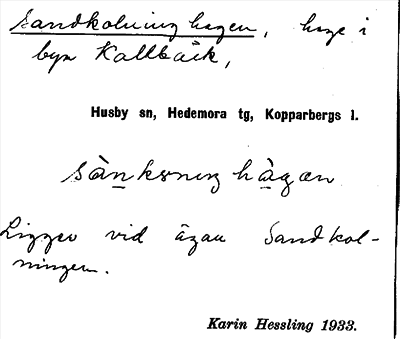 Sandkolninghagen, hage i
byn Kallbäck,
Husby sn, Hedemora tg, Kopparbergs l.
sànksning hàgan
Ligger vid ägan Sandkol-
ningen.
Karin Hessling 1933.